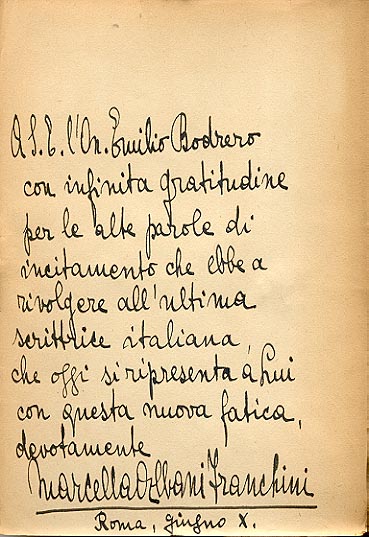 A S. E. l'On. Emilio Bodrero
con infinita gratitudine
per le alte parole di
incitamento che ebbe a
rivolgere all'ultima
scrittrice italiana,
che oggi si ripresenta a Lui
con questa nuova fatica,
devotamente
Marcella Albani Franchini
Roma, giugno X.